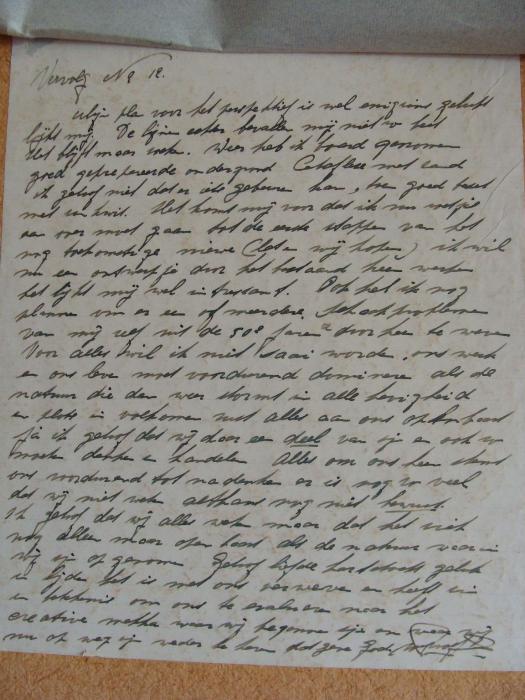 Vervolg No 12.
Mijn plan voor het perspektief is wel enigzins gelukt
lijkt mij. De lijnen echter bevallen mij niet zo heel
Het blijft maar weken. Weer heb ik board genomen
goed geprepareerde ondergrond met zand
ik geloof niet dat er iets gebeuren kan, ben goed
met Het komt mij voor dat ik nu
aan over moet gaan tot de eerste stappen van het
nog toekomstige nieuwe (laten wij hopen) ik wil
nu een ontwerpje door het bestaande heen werken
het lijkt mij wel interessant. Ook heb ik nog
plannen om er een of meerdere, schaakproblemen
van mij zelf uit de 50er jaren door heen te weven
Voor alles wil ik niet saai worden, ons werk
en ons leven moet voortdurend domineren als de
natuur die dan weer stormt in alle hevigheid
en plots in volkomen rust alles aan ons
Ja ik geloof dat wij daar een deel van zijn en ook zo
moeten denken en handelen Alles om ons heen stemt
ons voortdurend tot nadenken er is nog zo veel
dat wij niet weten althans nog niet bewust.
Ik geloof dat wij alles weten maar dat het
nog alleen maar open staat als de natuur waarin
wij zijn opgenomen Geloof liefde hartstocht geluk
en lijden het is met ons verweven en heeft zin
en betekenis om ons te evalueren naar het
creatieve waar wij begonnen zijn en
nu op weg zijn